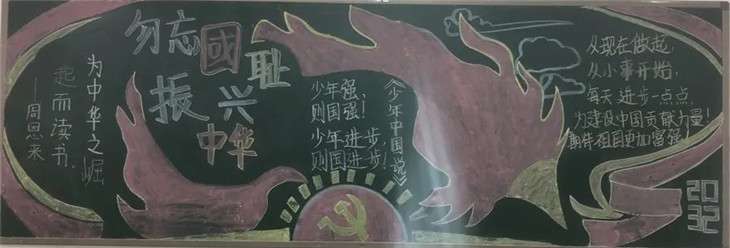 为中华之崛
起而读书。
——周恩来
勿忘國耻
振兴
中华
《少年中国说》
少年强,
则国强!
少年进步,
则国进步!
从现在做起,
从小事开始,
每天进步一点点,
为建设中国贡献力量!
祖国更加富强!
2032